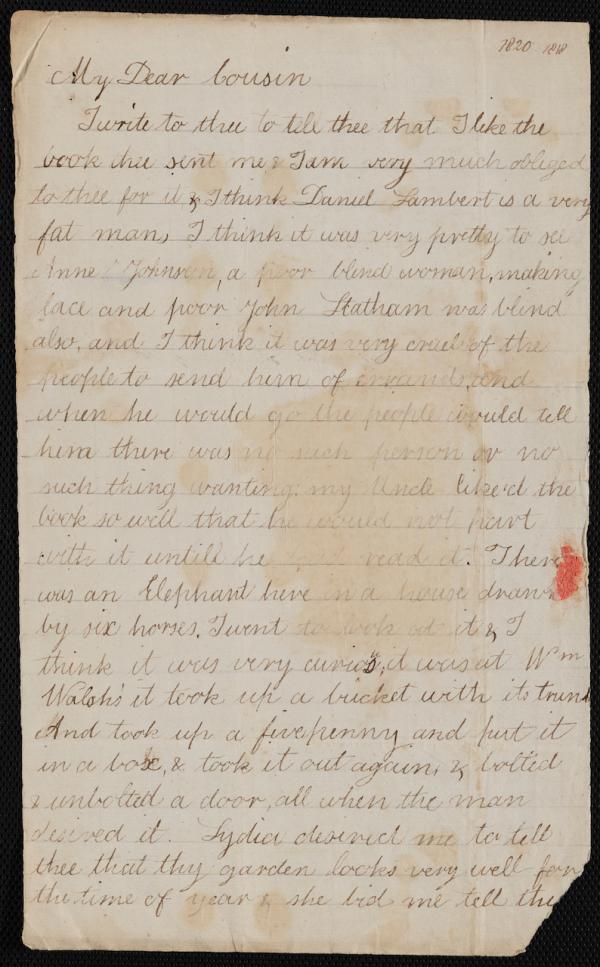 1820 1818
My Dear Cousin
I write to thee to tell thee that I like the
book thee sent me & I am very much obliged
to thee for it & I think Daniel Lambert is a very
fat man, I think it was very pretty to see
Anne Johnson, a poor blind woman, making
lace and poor John Statham was blind
also, and I think it was very cruel of the
people to send him of errands, and
when he would go the people would tell
him there was no such person or no
such thing wanting; my Uncle like'd the
book so well that he would not part
with it untill he had read it. There
was an Elephant here in a house drawn
by six horses. I went to look at it & I
think it was very curios; it was at Wm
Walsh's it took up a bucket with its trunk
And took up a fivepenny and put it
in a box, & took it out again, & bolted
& unbolted a door, all when the man
desired it. Lydia desired me to tell
thee that thy garden looks very well for
the time of year & she bid me tell thee